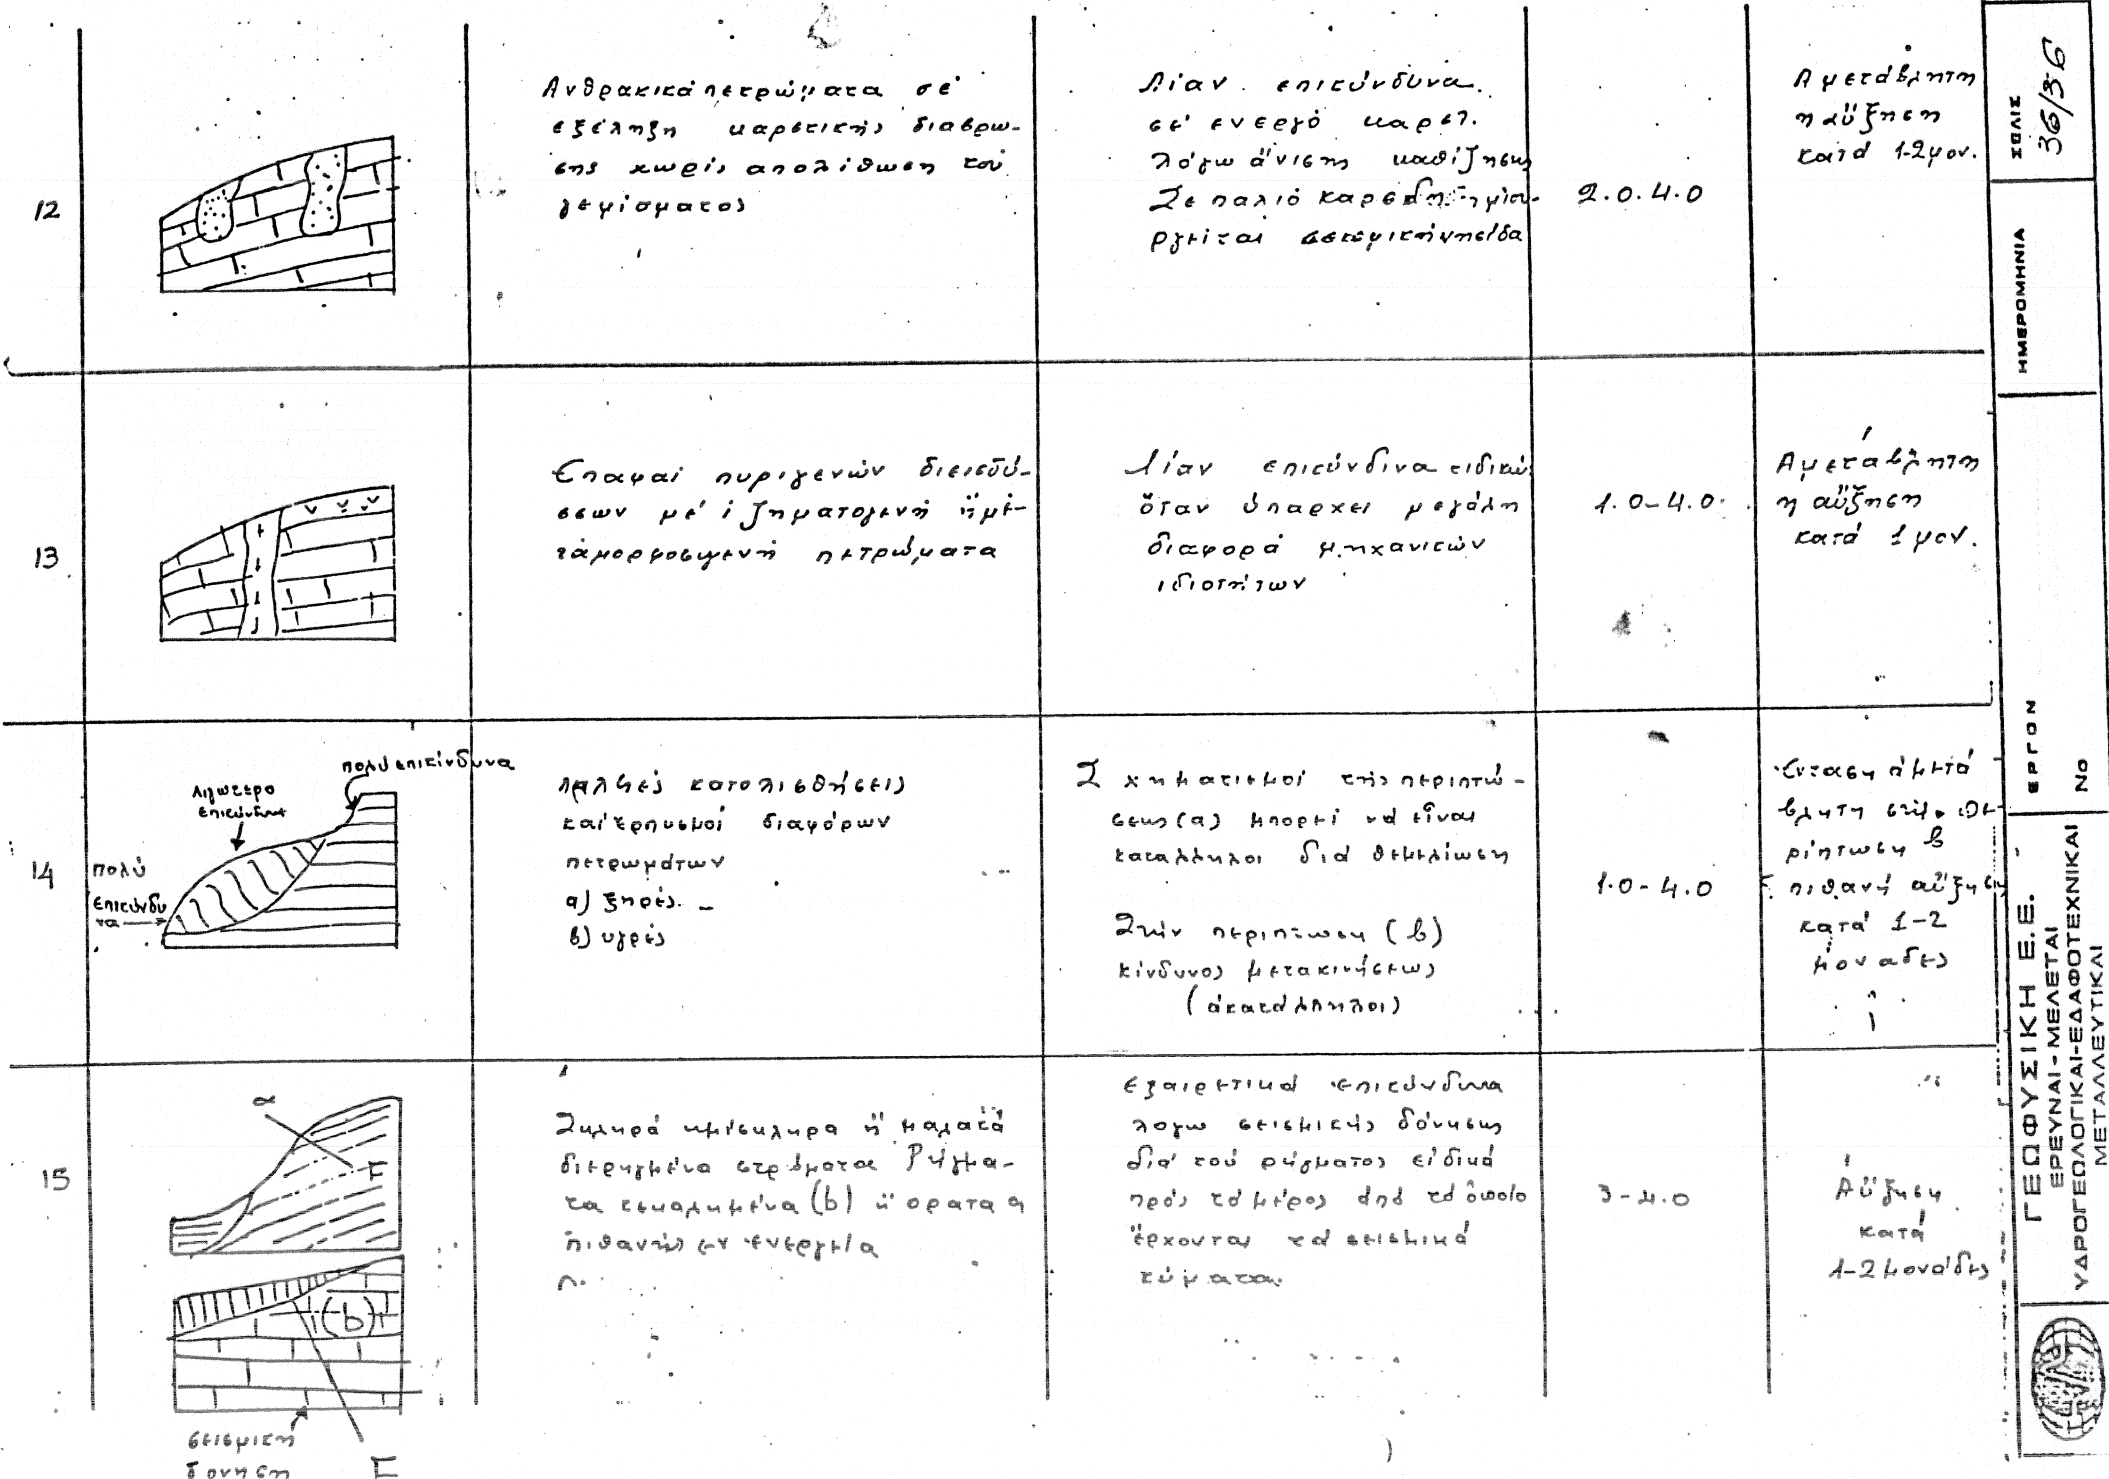 12
Ανθρακικά πετρώματα σέ
εξέληξη καρστικής διαβρω-
σης χωρίς απολίθωση τού
γεμίσματος
Λίαν επικύνδυνα
σέ ενεργό καρστ.
λόγω άνισης καθίζησης
Σε παλιό καρστ
2.0.4.0
Αμετάβλητη
η αύξηση
κατά 1-2 μον.
13
Επαφαί πυριγενών διεισδύ-
σεων μέ ιζηματογενή ή με-
ταμορφοσιγενή πετρώματα
Λίαν επικύνδινα ειδικώ
όταν ύπαρχει μεγάλη
διαφορά μηχανικών
ιδιοτήτων
1.0-4.0
Αμετάβλητη
η αύξηση
κατά 1 μον.
14
πολύ επικίνδυνα
Λιγώτερο
επικύνδυνα
πολύ
Επικύνδυ
να
παλιές κατολισθήσεις
καί ερπυσμοί διαφόρων
πετρωμάτων
α) ξηρές. -
β) υγρές
Σχηματισμοί τής περιπτώ-
σεως (α) μπορεί νά είναι
κατάλληλοι διά θεμελίωση
Στήν περιπτωση (β)
κίνδυνος μετακινήσεως
(ακατάλληλοι)
1.0-4.0
Ένταση άμετά
βλητη στή πε-
ρίπτωση β
πιθανή αύξηση
κατά 1-2
μονάδες
15
α
F
(b)
σεισμική
δονηση
F
Σκληρά ημίσκληρα ή μαλακά
διερηγμένα στρώματα Ρήγμα-
τα (b) ή ορατα α
πιθανώς εν ενεργεία
εξαιρετικά επικύνδυνα
λογω σεισμικής δόνησης
διά τού ρήγματος ειδικά
πρός τό μέρος από τό όποίο
έρχονται τά σεισμικά
κύματα.
3-4.0
Αύξηση
κατά
1-2 μονάδες
ΣΕΛΙΣ
36/36
ΗΜΕΡΟΜΗΝΙΑ
ΕΡΓΟΝ
Νο
ΓΕΩΦΥΣΙΚΗ Ε.Ε.
ΕΡΕΥΝΑΙ-ΜΕΛΕΤΑΙ
ΥΔΡΟΓΕΩΛΟΓΙΚΑΙ-ΕΔΑΦΟΤΕΧΝΙΚΑΙ
ΜΕΤΑΛΛΕΥΤΙΚΑΙ